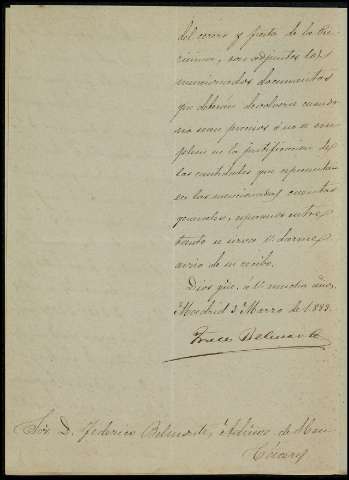 del corro y fiesta de la Pre
mium, son adjuntos los
mencionados documentos
que deberán devolverse cuando
no sean precisos ó no se em
pleen en la justificacion de
las cantidades que representan
en las mencionadas cuentas
generales, esperamos entre
tanto se sirva V. darme
aviso de su recibo.
Dios gue. á V. muchos años.
Madrid 3 Marzo de 1883.
Belmonte
Sor. D. Federico Belmonte, é de